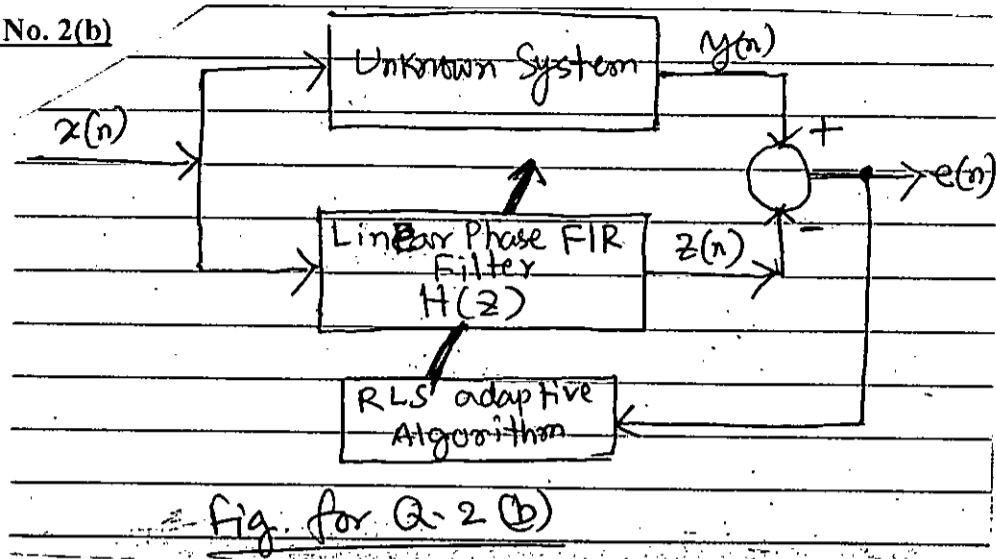 No. 2(b)
Unknown System
y(n)
x(n)
+
e(n)
-
Linear Phase FIR
Filter
H(Z)
z(n)
RLS adaptive
Algorithm
Fig. for Q-2 (b)